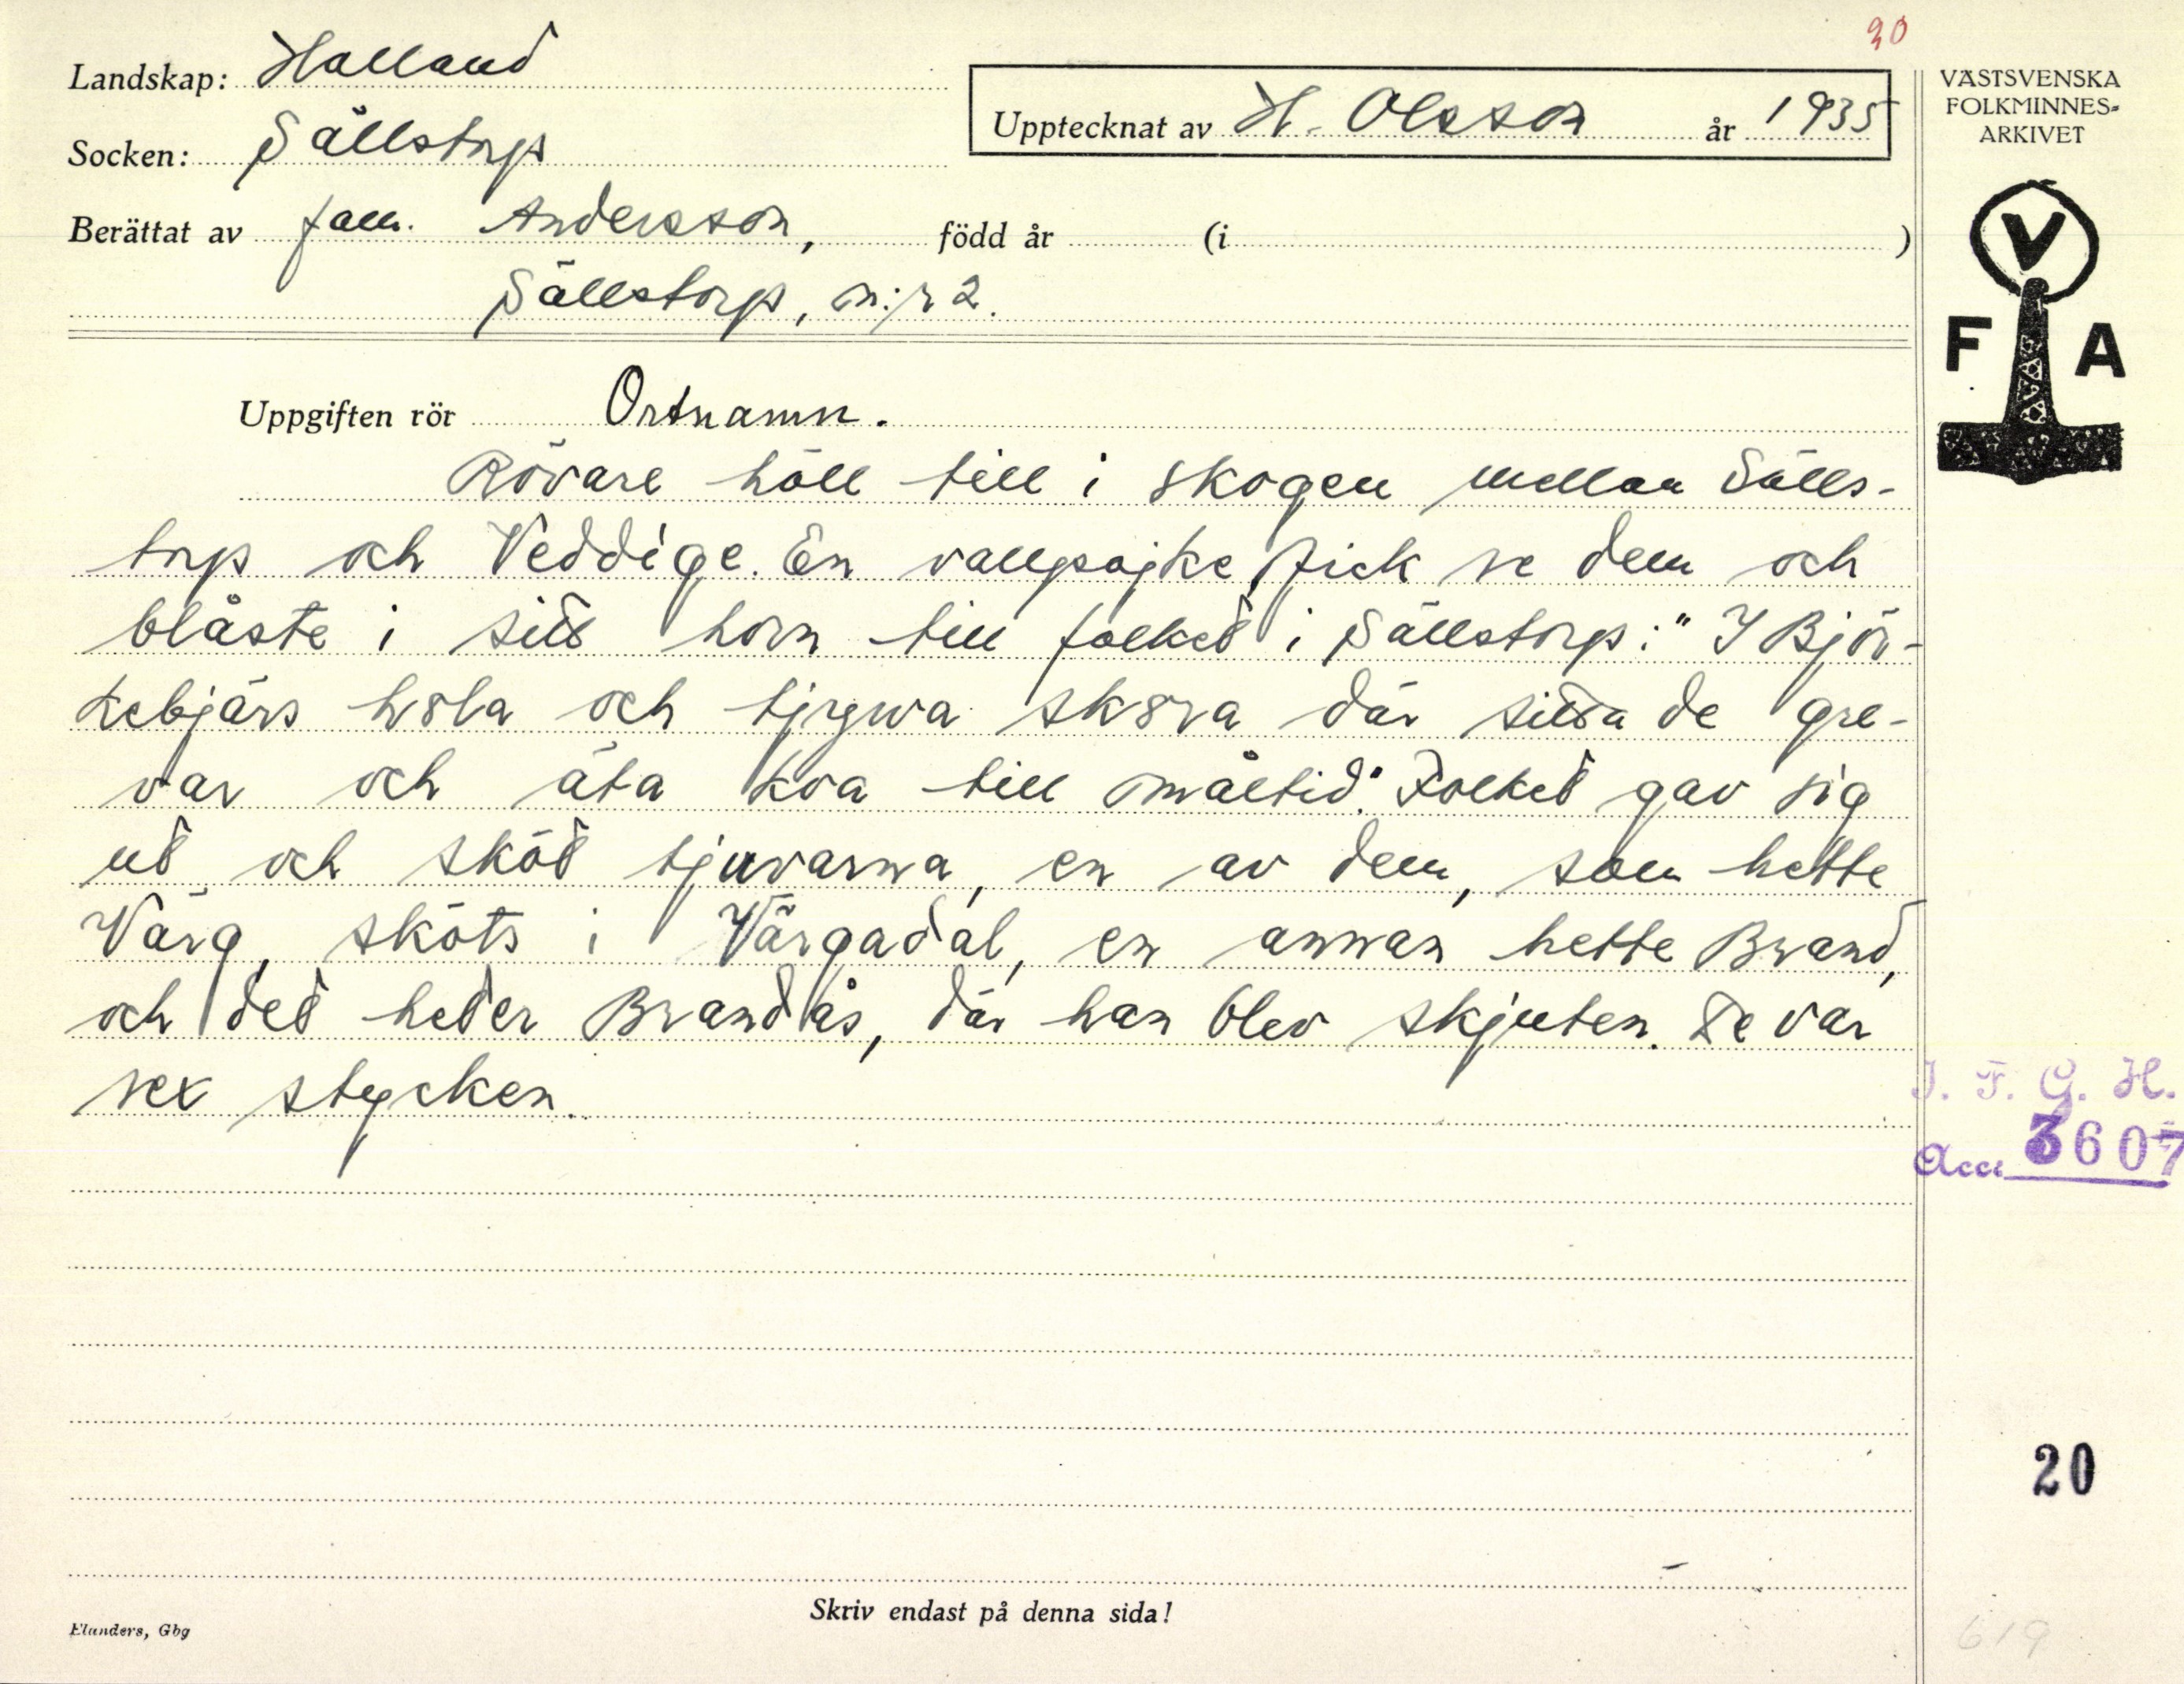 20
Landskap: Halland
Upptecknat av H. Olsson år 1935
VÄSTSVENSKA
FOLKMINNES-
ARKIVET
Socken: Sällstorp
Berättat av fam. Andersson, född år (i )
Sällstorp, n:r 2.
V
F A
Uppgiften rör Ortnamn.
Rövare höll till i skogen mellan Sälls-
torp och Veddige. En vallpojke fick se dem och
blåste i sitt horn till folket i Sällstorp: "I Björ-
kebjärs och där sitta de gre-
var och äta koa till måltid." Folket gav sig
ut och sköt tjuvarna, en av dem, som hette
Värg, sköts i Värgadal, en annan hette Brand,
och det heter Brandås, där han blev skjuten. De var
sex stycken.
I. F. G. H.
Acc. 3607
20
Skriv endast på denna sida!
Elanders, Gbg
619